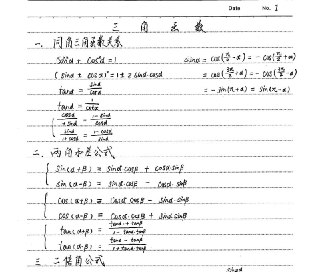 Date No. 1
三角函数
一、同角三角函数关系
sin²α + cos²α = 1
(sinα ± cosα)² = 1 ± 2 sinα·cosα
tanα = sinα/cosα
tanα = 1/cotα
cosα/1+sinα = 1-sinα/cosα
sinα/1+cosα = 1-cosα/sinα
sinα = cos(π/2 - α) = -cos(π/2 + α)
= cos(3π/2 + α) = -cos(3π/2 - α)
= -sin(π+α) = sin(π-α)
二、两角和差公式
sin(α+β) = sinα·cosβ + cosα·sinβ
sin(α-β) = sinα·cosβ - cosα·sinβ
cos(α+β) = cosα·cosβ - sinα·sinβ
cos(α-β) = cosα·cosβ + sinα·sinβ
tan(α+β) = tanα+tanβ/1-tanα·tanβ
tan(α-β) = tanα-tanβ/1+tanα·tanβ
三、二倍角公式